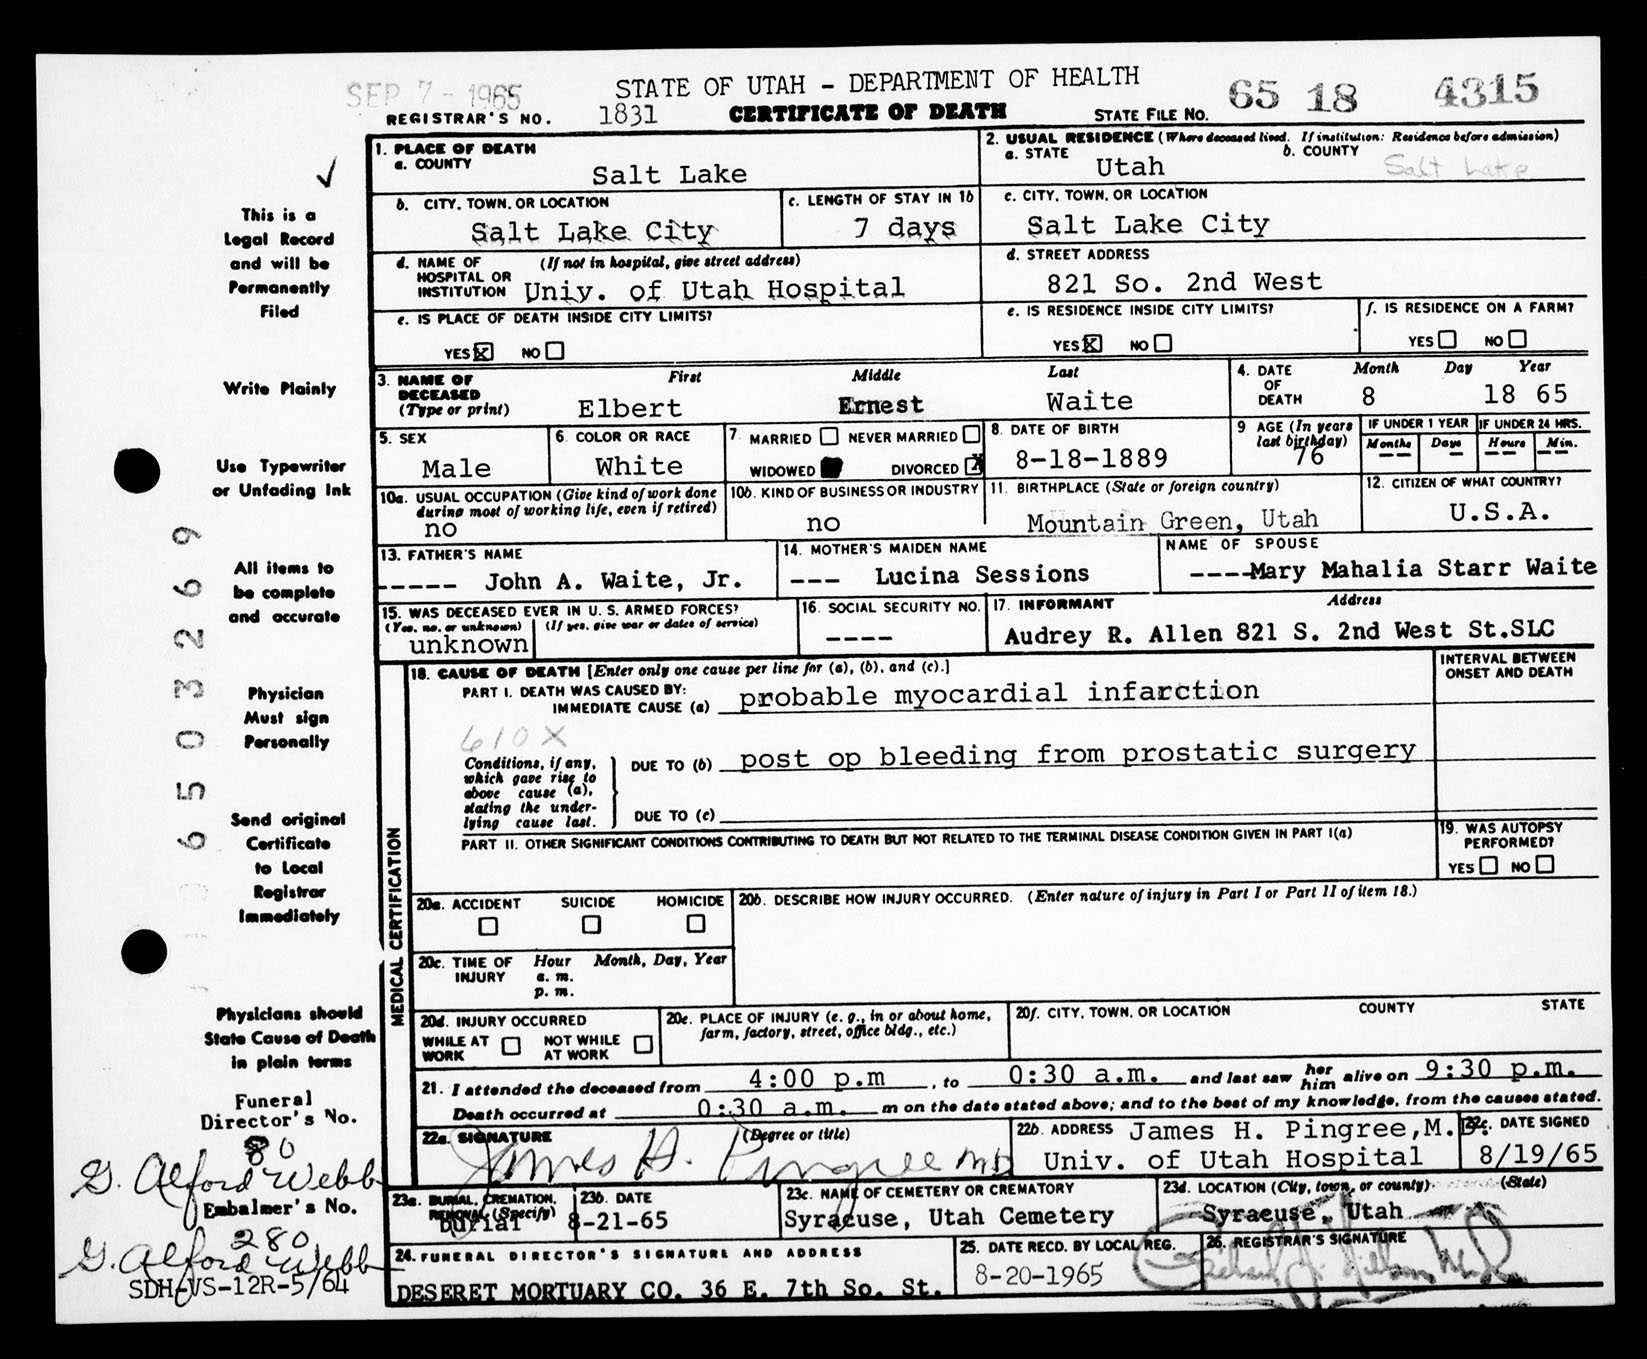 SEP 7 - 1965
STATE OF UTAH – DEPARTMENT OF HEALTH
65 18 4315
REGISTRAR'S NO. 1831 CERTIFICATE OF DEATH STATE FILE NO.
1. PLACE OF DEATH
a. COUNTY
Salt Lake
2. USUAL RESIDENCE (Where deceased lived. If institution: Residence before admission)
a. STATE Utah b. COUNTY Salt Lake
b. CITY, TOWN, OR LOCATION
Salt Lake City
c. LENGTH OF STAY IN 1b
7 days
c. CITY, TOWN, OR LOCATION
Salt Lake City
d. NAME OF (If not in hospital, give street address)
HOSPITAL OR
INSTITUTION Univ. of Utah Hospital
d. STREET ADDRESS
821 So. 2nd West
e. IS PLACE OF DEATH INSIDE CITY LIMITS?
YES X NO
e. IS RESIDENCE INSIDE CITY LIMITS?
YES X NO
f. IS RESIDENCE ON A FARM?
YES NO
3. NAME OF
DECEASED
(Type or print)
First Middle Last
Elbert Ernest Waite
4. DATE
OF
DEATH
Month Day Year
8 18 65
5. SEX
Male
6. COLOR OR RACE
White
7. MARRIED NEVER MARRIED
WIDOWED DIVORCED X
8. DATE OF BIRTH
8-18-1889
9 AGE (In years
last birthday)
76
IF UNDER 1 YEAR IF UNDER 24 HRS.
Months Days Hours Min.
-- -- -- --
10a. USUAL OCCUPATION (Give kind of work done
during most of working life, even if retired)
no
10b. KIND OF BUSINESS OR INDUSTRY
no
11. BIRTHPLACE (State or foreign country)
Mountain Green, Utah
12. CITIZEN OF WHAT COUNTRY?
U.S.A.
13. FATHER'S NAME
----- John A. Waite, Jr.
14. MOTHER'S MAIDEN NAME
--- Lucina Sessions
NAME OF SPOUSE
----Mary Mahalia Starr Waite
15. WAS DECEASED EVER IN U. S. ARMED FORCES?
(Yes, no, or unknown) (If yes, give war or dates of service)
unknown
16. SOCIAL SECURITY NO.
----
17. INFORMANT Address
Audrey R. Allen 821 S. 2nd West St.SLC
18. CAUSE OF DEATH [Enter only one cause per line for (a), (b), and (c).]
INTERVAL BETWEEN
ONSET AND DEATH
PART I. DEATH WAS CAUSED BY:
IMMEDIATE CAUSE (a) probable myocardial infarction
610X
Conditions, if any,
which gave rise to
above cause (a),
stating the under-
lying cause last.
DUE TO (b) post op bleeding from prostatic surgery
DUE TO (c)
PART II. OTHER SIGNIFICANT CONDITIONS CONTRIBUTING TO DEATH BUT NOT RELATED TO THE TERMINAL DISEASE CONDITION GIVEN IN PART I(a)
19. WAS AUTOPSY
PERFORMED?
YES NO
MEDICAL CERTIFICATION
20a. ACCIDENT SUICIDE HOMICIDE
20b. DESCRIBE HOW INJURY OCCURRED. (Enter nature of injury in Part I or Part II of item 18.)
20c. TIME OF Hour Month, Day, Year
INJURY a. m.
p. m.
20d. INJURY OCCURRED
WHILE AT NOT WHILE
WORK AT WORK
20e. PLACE OF INJURY (e. g., in or about home,
farm, factory, street, office bldg., etc.)
20f. CITY, TOWN, OR LOCATION COUNTY STATE
21. I attended the deceased from 4:00 p.m , to 0:30 a.m. and last saw her him alive on 9:30 p.m.
Death occurred at 0:30 a.m. m on the date stated above; and to the best of my knowledge, from the causes stated.
22a. SIGNATURE (Degree or title)
James H. Pingree MD
22b. ADDRESS James H. Pingree,M.D.
Univ. of Utah Hospital
22c. DATE SIGNED
8/19/65
23a. BURIAL, CREMATION,
REMOVAL (Specify)
burial
23b. DATE
8-21-65
23c. NAME OF CEMETERY OR CREMATORY
Syracuse, Utah Cemetery
23d. LOCATION (City, town, or county) (State)
Syracuse, Utah
24. FUNERAL DIRECTOR'S SIGNATURE AND ADDRESS
DESERET MORTUARY CO. 36 E. 7th So. St.
25. DATE RECD. BY LOCAL REG.
8-20-1965
26. REGISTRAR'S SIGNATURE
This is a
Legal Record
and will be
Permanently
Filed
Write Plainly
Use Typewriter
or Unfading Ink
All items to
be complete
and accurate
Physician
Must sign
Personally
Send original
Certificate
to Local
Registrar
Immediately
Physicians should
State Cause of Death
in plain terms
Funeral
Director's No.
80
G. Alford Webb
Embalmer's No.
280
G. Alford Webb
SDH-VS-12R-5/64
6503269